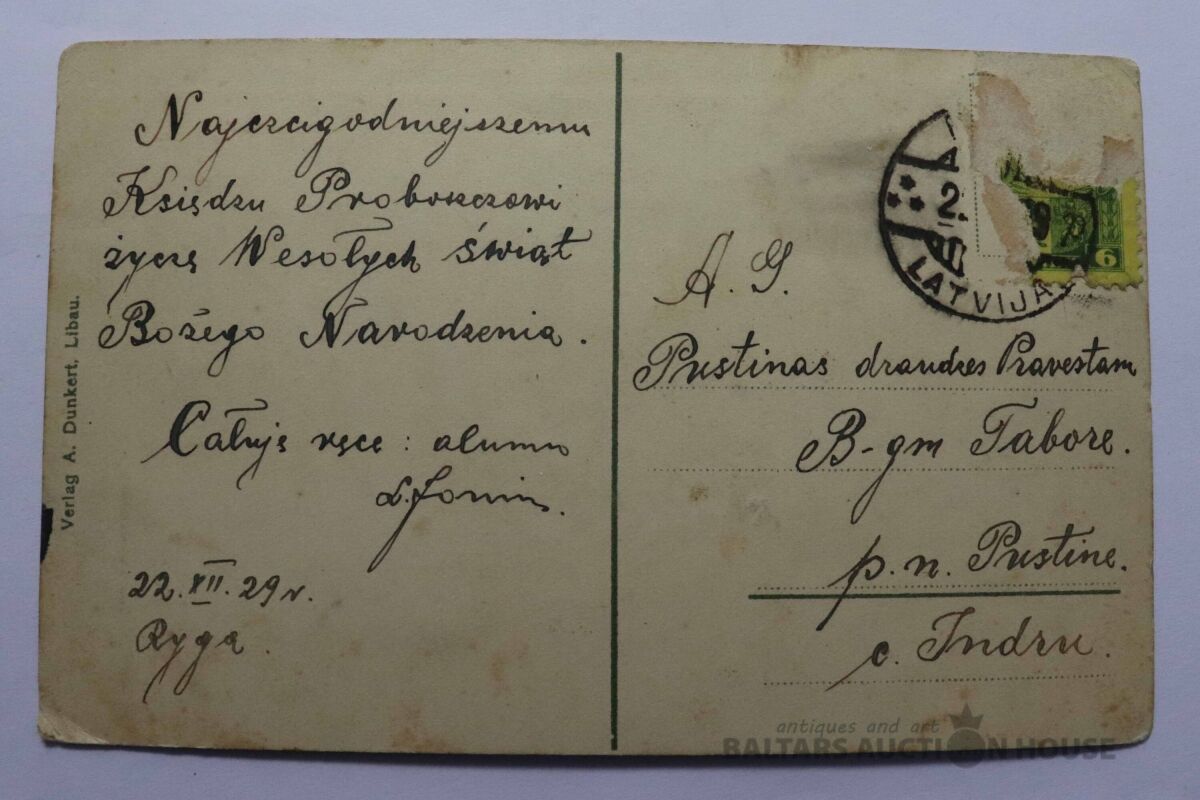 Najczcigodniejszemu
Księdzu Proboszczowi
życzę Wesołych świąt
Bożego Narodzenia.
Całuję ręce: alumn
22.XII.29 r.
Ryga.
Verlag A. Dunkert, Libau.
LATVIJA
6
A. G.
Pustinas draudzes Pravestam
B-gm Tabore.
p. n. Pustine.
c. Indru.
antiques and art
BALTARS AUCTION HOUSE